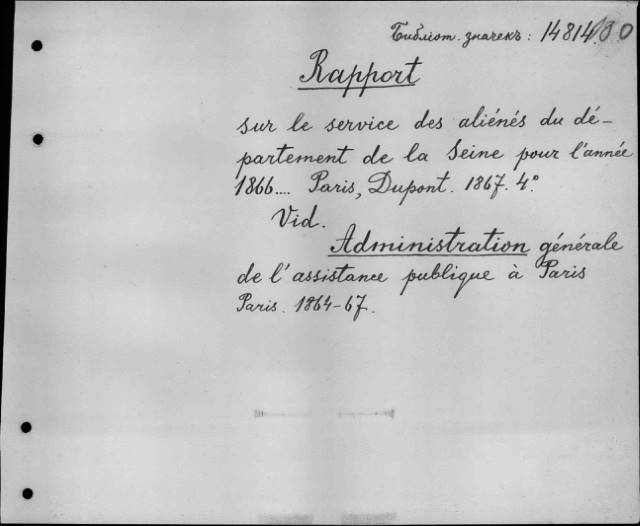 Библіот. значекъ: 14814.00
Rapport
sur le service des aliénés du dé-
partement de la Seine pour l'année
1866.... Paris, Dupont. 1867. 4°.
Vid.
Administration générale
de l'assistance publique à Paris
Paris. 1864-67.